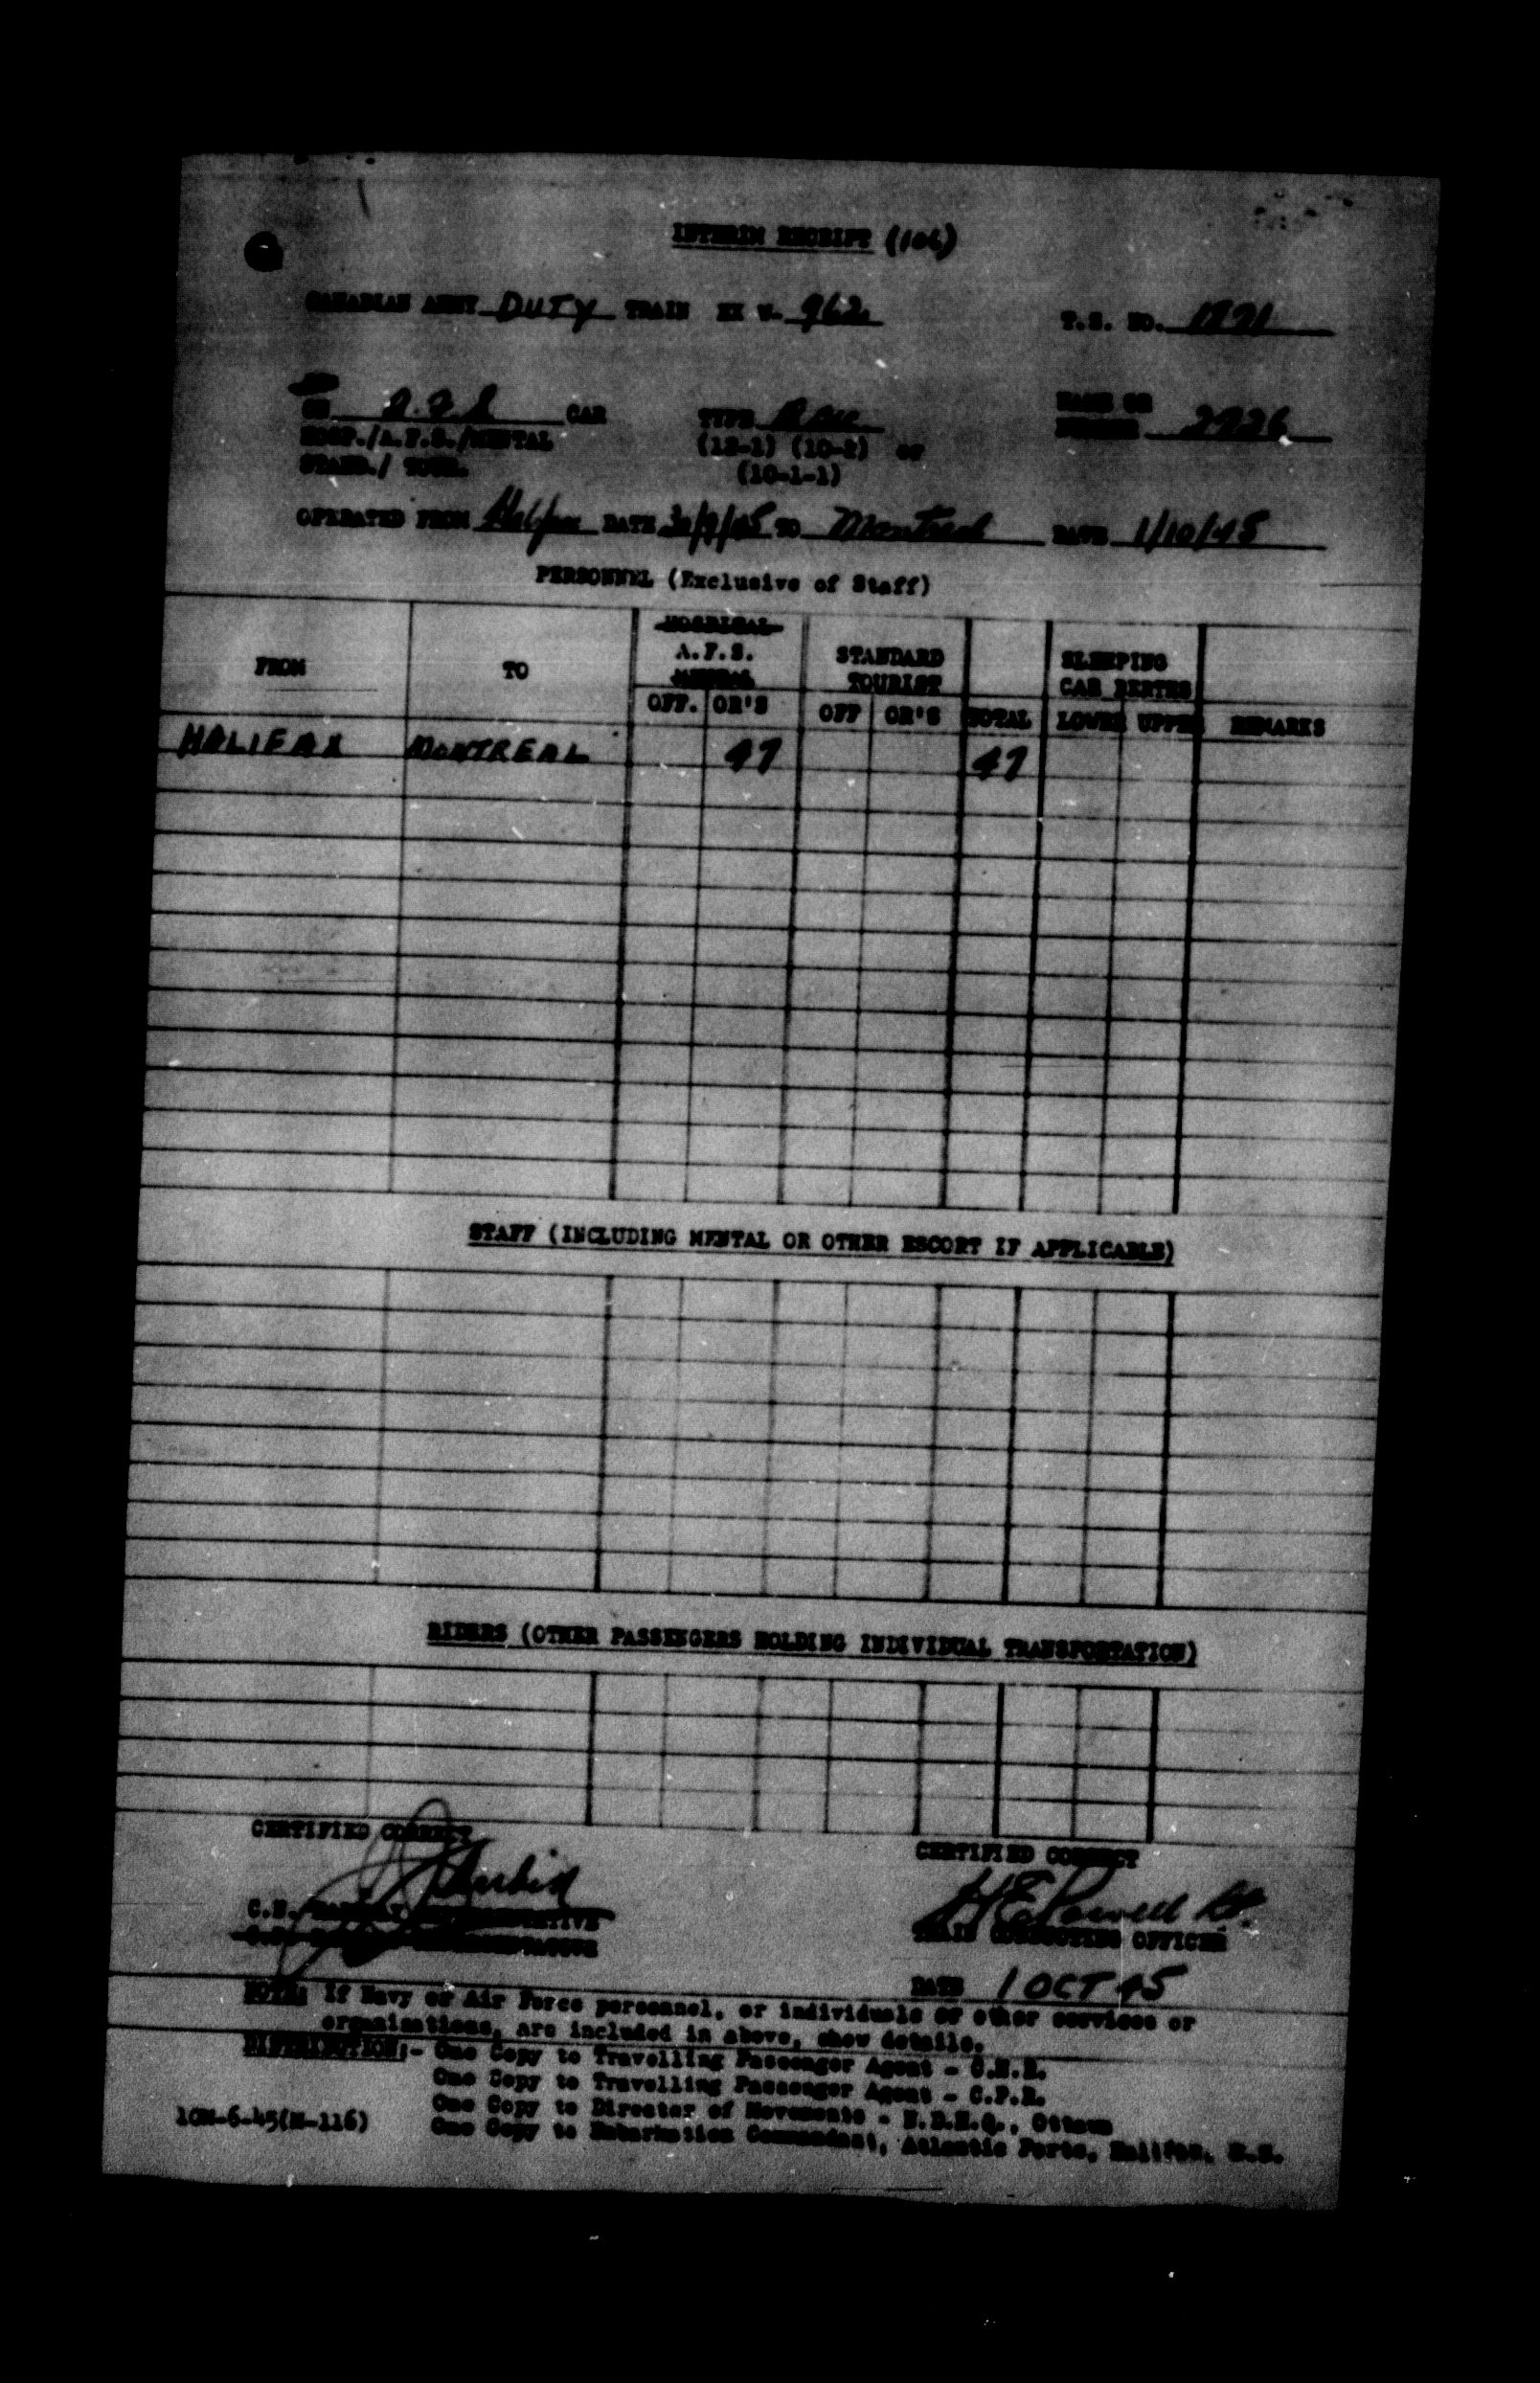 INTERIM RECEIPT (106)
CANADIAN ARMY DUTY TRAIN EX W- 962 T.S. NO.
CN CAR TYPE NAME OR
HOSP./A.F.S./MENTAL (12-1) (10-2) or NUMBER
STAND./ TOUR. (10-1-1)
OPERATED FROM Halifax DATE 30/9/45 TO Montreal DATE 1/10/45
PERSONNEL (Exclusive of Staff)
FROM TO HOSPITAL A.F.S. MENTAL STANDARD TOURIST SLEEPING CAR BERTHS
OFF. OR'S OFF OR'S TOTAL LOWER UPPER REMARKS
HALIFAX MONTREAL 47 47
STAFF (INCLUDING MENTAL OR OTHER ESCORT IF APPLICABLE)
RIDERS (OTHER PASSENGERS HOLDING INDIVIDUAL TRANSPORTATION)
CERTIFIED CORRECT CERTIFIED CORRECT
H E Powell
TRAIN CONDUCTING OFFICER
DATE 1 OCT 45
NOTE: If Navy or Air Force personnel, or individuals of other services or
organizations, are included in above, show details.
DISTRIBUTION:- One Copy to Travelling Passenger Agent - C.N.R.
One Copy to Travelling Passenger Agent - C.P.R.
One Copy to Director of Movements - N.D.H.Q., Ottawa
10M-6-45(M-116) One Copy to Embarkation Commandant, Atlantic Ports, Halifax, N.S.